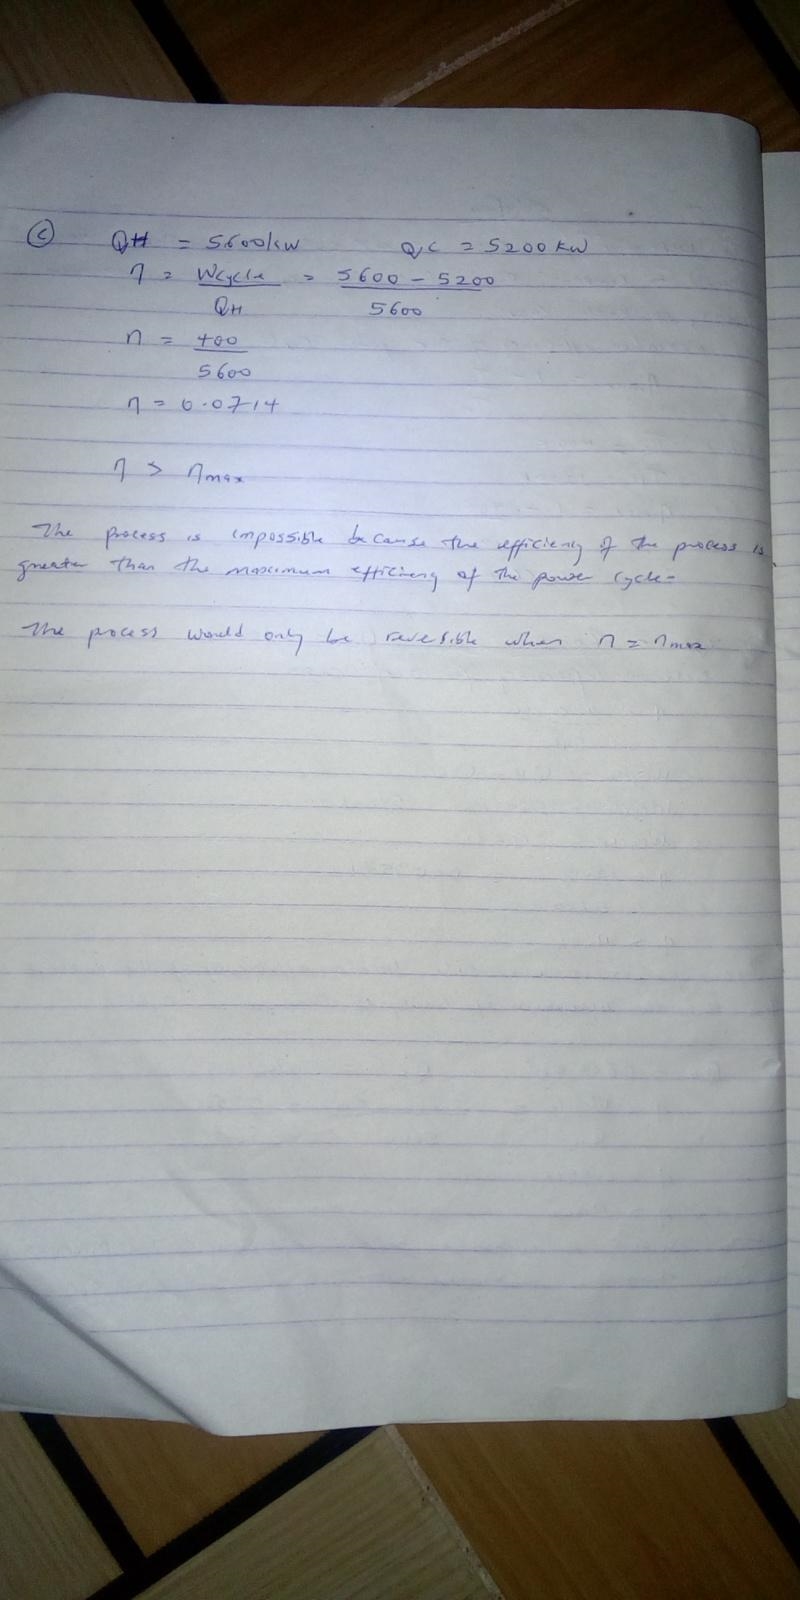 (c) QH = 5600kW QC = 5200 KW
η = Wcycle / QH = 5600 - 5200 / 5600
η = 400 / 5600
η = 0.0714
η > ηmax
The process is impossible because the efficiency of the process is
greater than the maximum efficiency of the power cycle.
The process would only be reversible when η = ηmax